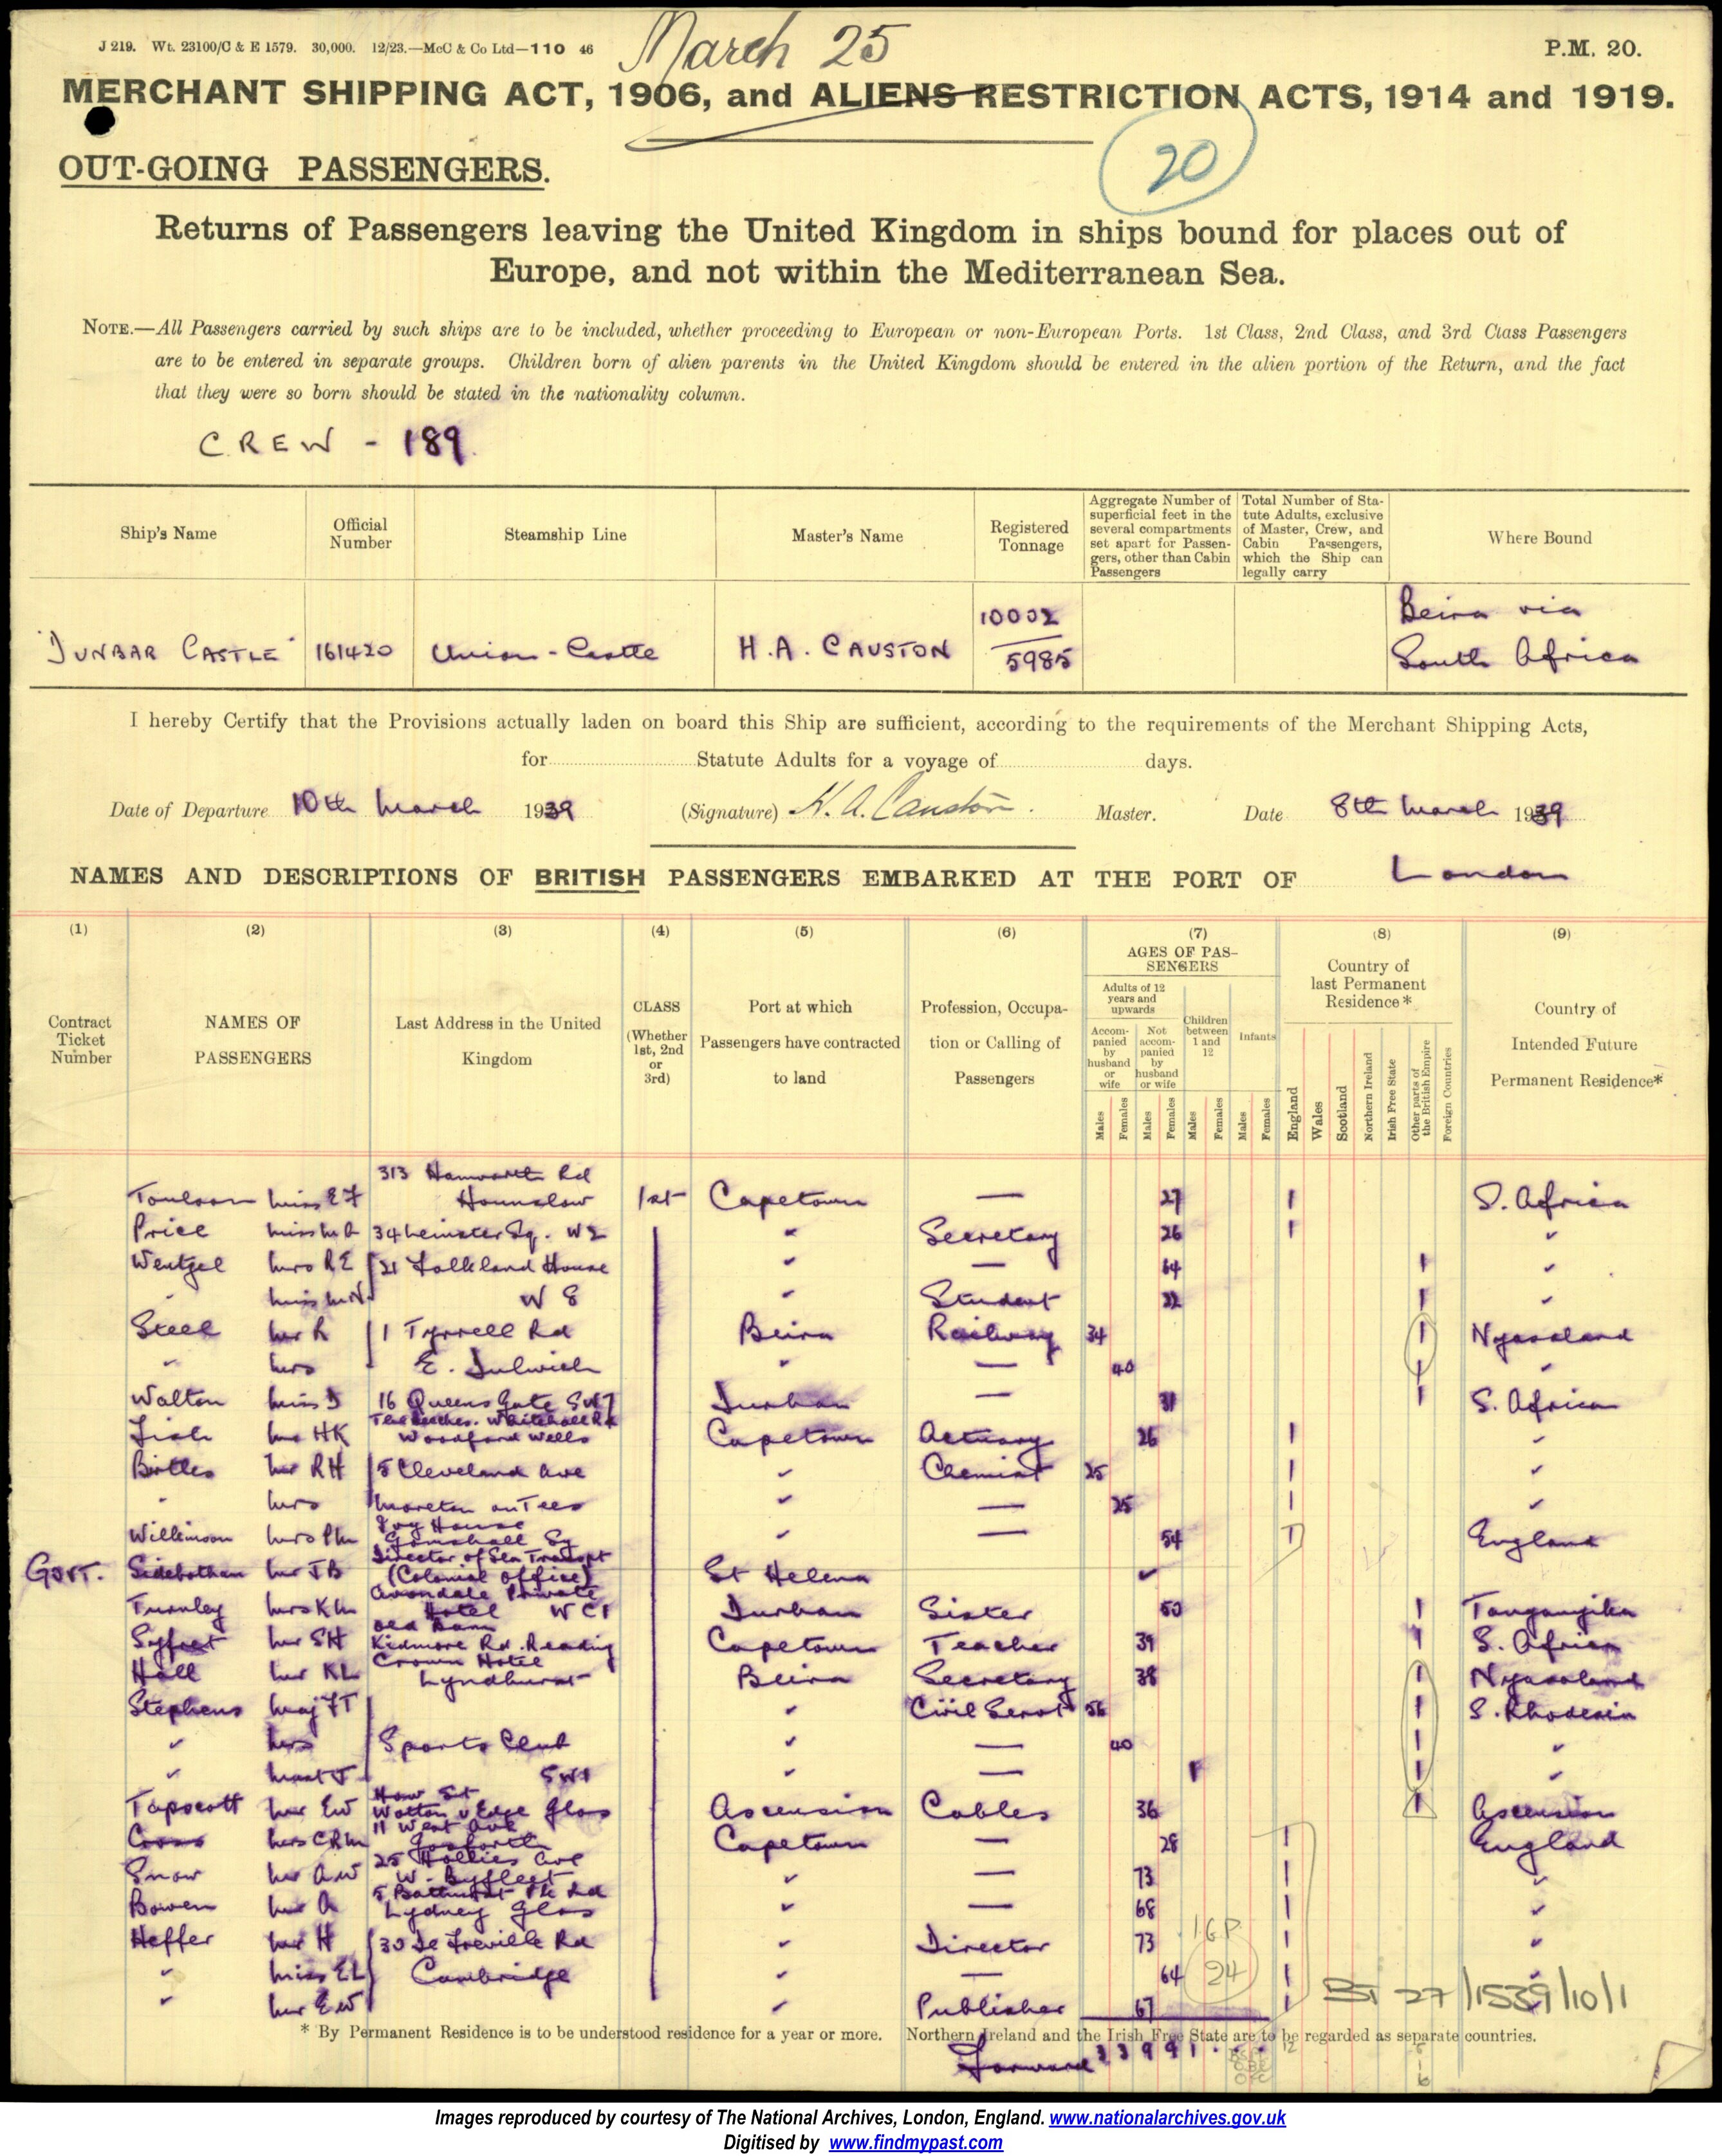 J 219. Wt. 23100/C & E 1579. 30,000. 12/23.—McC & Co Ltd—110 46
March 25
P.M. 20.
MERCHANT SHIPPING ACT, 1906, and ALIENS RESTRICTION ACTS, 1914 and 1919.
20
OUT-GOING PASSENGERS.
Returns of Passengers leaving the United Kingdom in ships bound for places out of
Europe, and not within the Mediterranean Sea.
NOTE.—All Passengers carried by such ships are to be included, whether proceeding to European or non-European Ports. 1st Class, 2nd Class, and 3rd Class Passengers
are to be entered in separate groups. Children born of alien parents in the United Kingdom should be entered in the alien portion of the Return, and the fact
that they were so born should be stated in the nationality column.
CREW - 189.
Ship's Name
Official Number
Steamship Line
Master's Name
Registered Tonnage
Aggregate Number of superficial feet in the several compartments set apart for Passengers, other than Cabin Passengers
Total Number of Statute Adults, exclusive of Master, Crew, and Cabin Passengers, which the Ship can legally carry
Where Bound
"DUNBAR CASTLE" 161420 Union-Castle H.A. CAUSTON 10002 / 5985 Beira via South Africa
I hereby Certify that the Provisions actually laden on board this Ship are sufficient, according to the requirements of the Merchant Shipping Acts,
for Statute Adults for a voyage of days.
Date of Departure 10th March 1939 (Signature) H. A. Causton. Master. Date 8th March 1939
NAMES AND DESCRIPTIONS OF BRITISH PASSENGERS EMBARKED AT THE PORT OF London
(1) (2) (3) (4) (5) (6) (7) (8) (9)
Contract Ticket Number
NAMES OF PASSENGERS
Last Address in the United Kingdom
CLASS (Whether 1st, 2nd or 3rd)
Port at which Passengers have contracted to land
Profession, Occupation or Calling of Passengers
AGES OF PASSENGERS
Adults of 12 years and upwards
Accompanied by husband or wife
Not accompanied by husband or wife
Children between 1 and 12
Infants
Males Females Males Females Males Females Males Females
Country of last Permanent Residence *
England Wales Scotland Northern Ireland Irish Free State Other parts of the British Empire Foreign Countries
Country of Intended Future Permanent Residence*
313 Hanworth Rd
Miss E F Hounslow 1st Capetown — 27 1 S. Africa
Price Miss M A 34 Leinster Sq. W2 " Secretary 26 1 "
Wentzel Mrs R E 21 Falkland House " — 64 1 "
" Miss M N W 8 " Student 32 1 "
Steel Mr R 1 Tyrrell Rd Beira Railway 34 1 Nyasaland
" Mrs E. Dulwich " — 40 1 "
Walton Miss D 16 Queens Gate SW7 Durban — 31 1 S. African
The Beeches. Whitehall Rd
Mr HK Woodford Wells Capetown Actuary 26 1 "
Birtles Mr RH 5 Cleveland Ave " Chemist 25 1 "
" Mrs Moreton on Tees " — 25 1 "
Ivy House
Wilkinson Mrs Gomshall Sy " — 54 1 England
Director of Sea Transpt
Govt. Sidebotham Mr JB (Colonial Office) St Helena
Avondale Private
Turnley Mrs K M Hotel WC1 Durban Sister 50 1 Tanganyika
Old Barn
Syfret Mr SH Kidmore Rd. Reading Capetown Teacher 39 1 S. Africa
Crown Hotel
Hall Mr KL Lyndhurst Beira Secretary 38 1 Nyasaland
Stephens Maj FT " Civil Servt 56 1 S. Rhodesia
" Mrs Sports Club " — 40 1 "
" Mast J SW1 " — 1 1 "
Haw St
Tapscott Mr EW Wotton u Edge Glos Ascension Cables 36 1 Ascension
11 West Ave
Cross Mrs CRM Gosforth Capetown — 28 1 England
25 Hollies Ave
Snow Mr AW W. Byfleet " — 73 1 "
5 Bathurst Pk Rd
Bowen Mr A Lydney Glos " — 68 1 "
Heffer Mr H 30 De Freville Rd " Director 73 1 "
" Miss EL Cambridge " — 64 1 "
" Mr EW " Publisher 67 1 "
24
BT 27/1539/10/1
* By Permanent Residence is to be understood residence for a year or more. Northern Ireland and the Irish Free State are to be regarded as separate countries.
Forward 3 3 9 9 1 . . . 12
Images reproduced by courtesy of The National Archives, London, England. www.nationalarchives.gov.uk
Digitised by www.findmypast.com